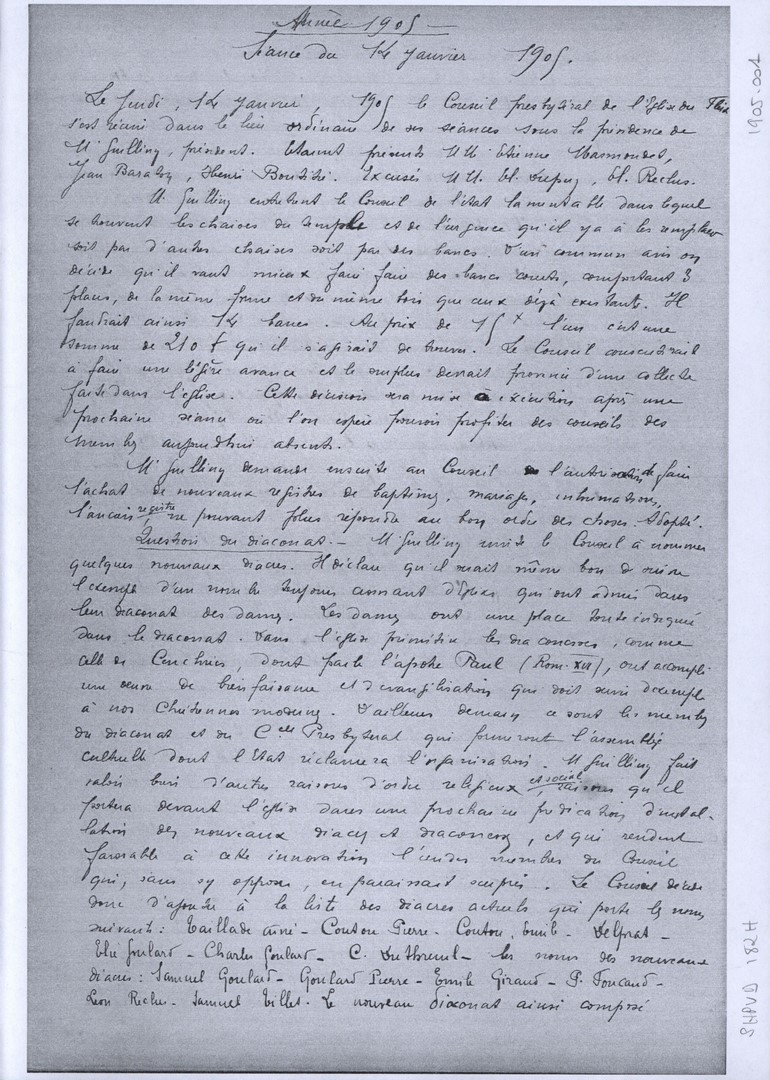 Année 1905 —
Séance du 12 Janvier 1905.
Le Jeudi, 12 Janvier, 1905 le Conseil presbytéral de l'Eglise du Fleix
s'est réuni dans le lieu ordinaire de ses séances sous la présidence de
M Guelling, président. Etaient présents MM. Etienne Masmondet,
Jean Baraton, Henri Boutitié. Excusés MM. El. Dupuy, El. Reclus.
M. Guelling entretient le Conseil de l'état lamentable dans lequel
se trouvent les chaises du temple et de l'urgence qu'il y a à les remplacer
soit par d'autres chaises soit par des bancs. D'un commun avis on
décide qu'il vaut mieux faire faire des bancs courts, comportant 3
places, de la même forme et du même bois que ceux déjà existants. Il
faudrait ainsi 14 bancs. Au prix de 15 f l'un c'est une
somme de 210 f qu'il s'agirait de trouver. Le Conseil consentirait
à faire une légère avance et le surplus devrait provenir d'une collecte
faite dans l'église. Cette décision sera mise à exécution après une
prochaine séance où l'on espère pouvoir profiter des conseils des
membres aujourd'hui absents.
M Guelling demande ensuite au Conseil l'autorisation de faire
l'achat de nouveaux registres de baptêmes, mariages, inhumations,
l'ancien registre ne pouvant plus répondre au bon ordre des choses. Adopté.
Question du diaconat. — M Guelling invite le Conseil à nommer
quelques nouveaux diacres. Il déclare qu'il serait même bon de suivre
l'exemple d'un nombre toujours croissant d'Eglises qui ont admis dans
leur diaconat des dames. Les dames ont une place toute indiquée
dans le diaconat. Dans l'église primitive les diaconesses, comme
celle de Cenchrées, dont parle l'apôtre Paul (Rom. XVI), ont accompli
une oeuvre de bienfaisance et d'évangélisation qui doit servir d'exemple
à nos Chrétiennes modernes. D'ailleurs demain ce sont les membres
du diaconat et du Ceil Presbytéral qui formeront l'assemblée
cultuelle dont l'Etat réclamera l'organisation. M Guelling fait
valoir bien d'autres raisons d'ordre religieux et social, raisons qu'il
portera devant l'église dans une prochaine prédication d'instal-
lation des nouveaux diacres et diaconesses, et qui rendent
favorable à cette innovation membres du Conseil
qui, sans s'y opposer, en paraissaient surpris. Le Conseil décide
donc d'ajouter à la liste des diacres actuels qui porte les noms
suivants : Taillade aîné — Couton Pierre — Couton, Emile — Delprat —
Elie Goulard — Charles Goulard — C. Duthreuil — les noms des nouveaux
diacres : Samuel Goulard — Goulard Pierre — Emile Giraud — P. Foucaud —
Léon Reclus — Samuel Tillet. Le nouveau diaconat ainsi composé
1905-001
SHPVD 182H